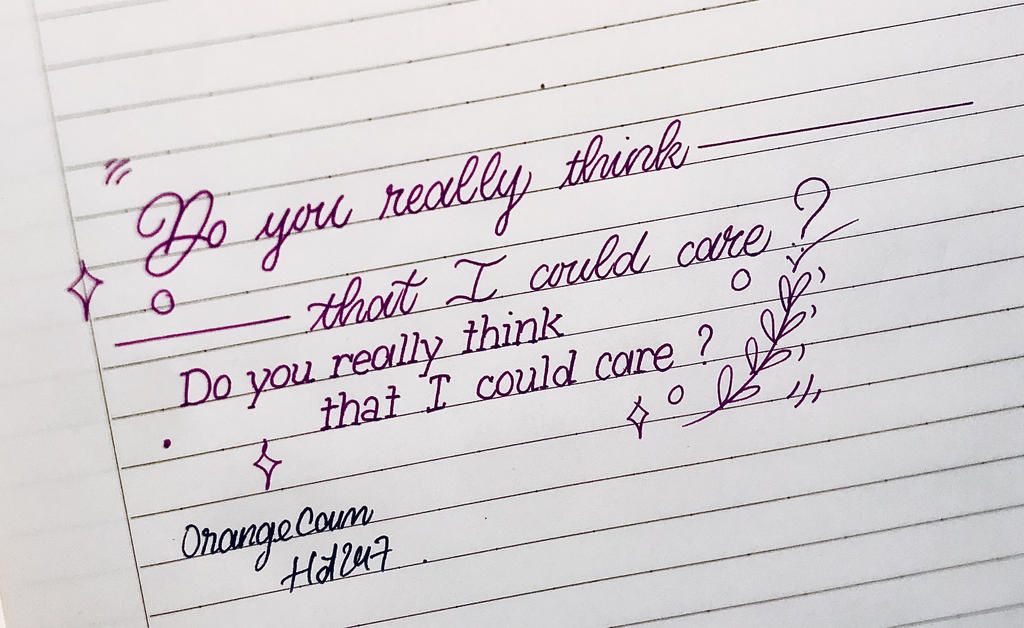 "Do you really think
that I could care?
Do you really think
that I could care?
OrangeCoum
Hd247